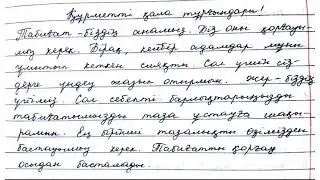 Құрметті қала тұрғындары!
Табиғат - біздің анамыз. Біз оны қорғауы-
мыз керек. Бірақ, кейбір адамдар мұны
ұмытып кеткен сияқты. Сол үшін сіз-
дерге үндеу жазып отырмын. Жер - біздің
үйіміз. Сол себепті барлықтарыңызды
табиғатымызды таза ұстауға шақы-
рамын. Ең бірінші тазалықты өзімізден
бастауымыз керек. Табиғатты қорғау
осыдан басталады.